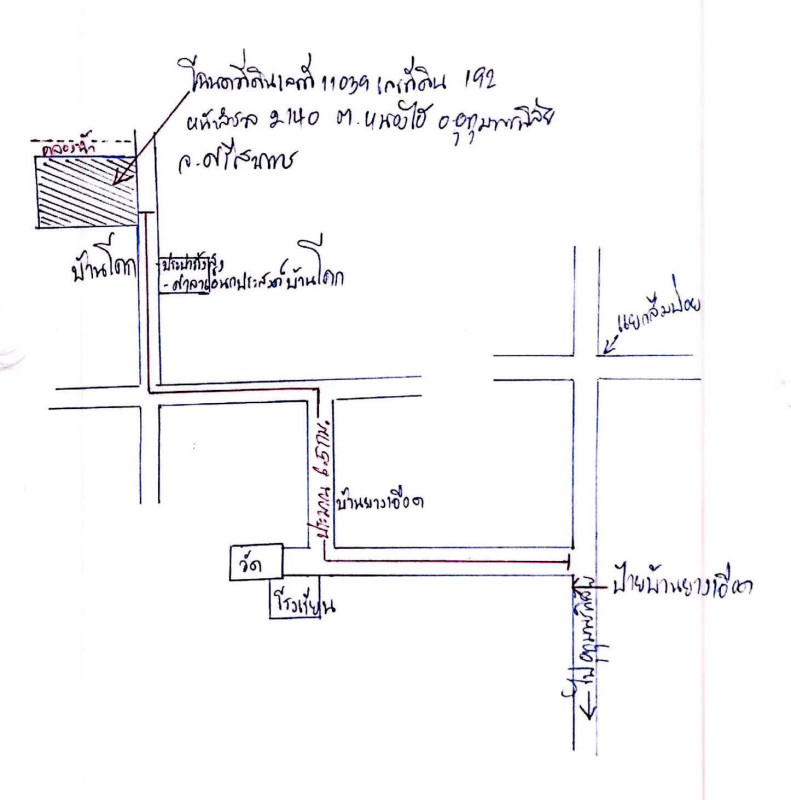 โฉนดที่ดินเลขที่ 11039 เลขที่ดิน 192
หน้าสำรวจ 2140 ต.หนองไฮ อ.อุทุมพรพิสัย
จ.ศรีสะเกษ
คลองน้ำ
บ้านโคก
ประปาถังสูง
- ศาลาอเนกประสงค์บ้านโคก
แยกส้มป่อย
ประมาณ 6.5 กม.
บ้านยางเอือด
วัด
โรงเรียน
ป้ายบ้านยางเอือด
ไปอุทุมพรพิสัย